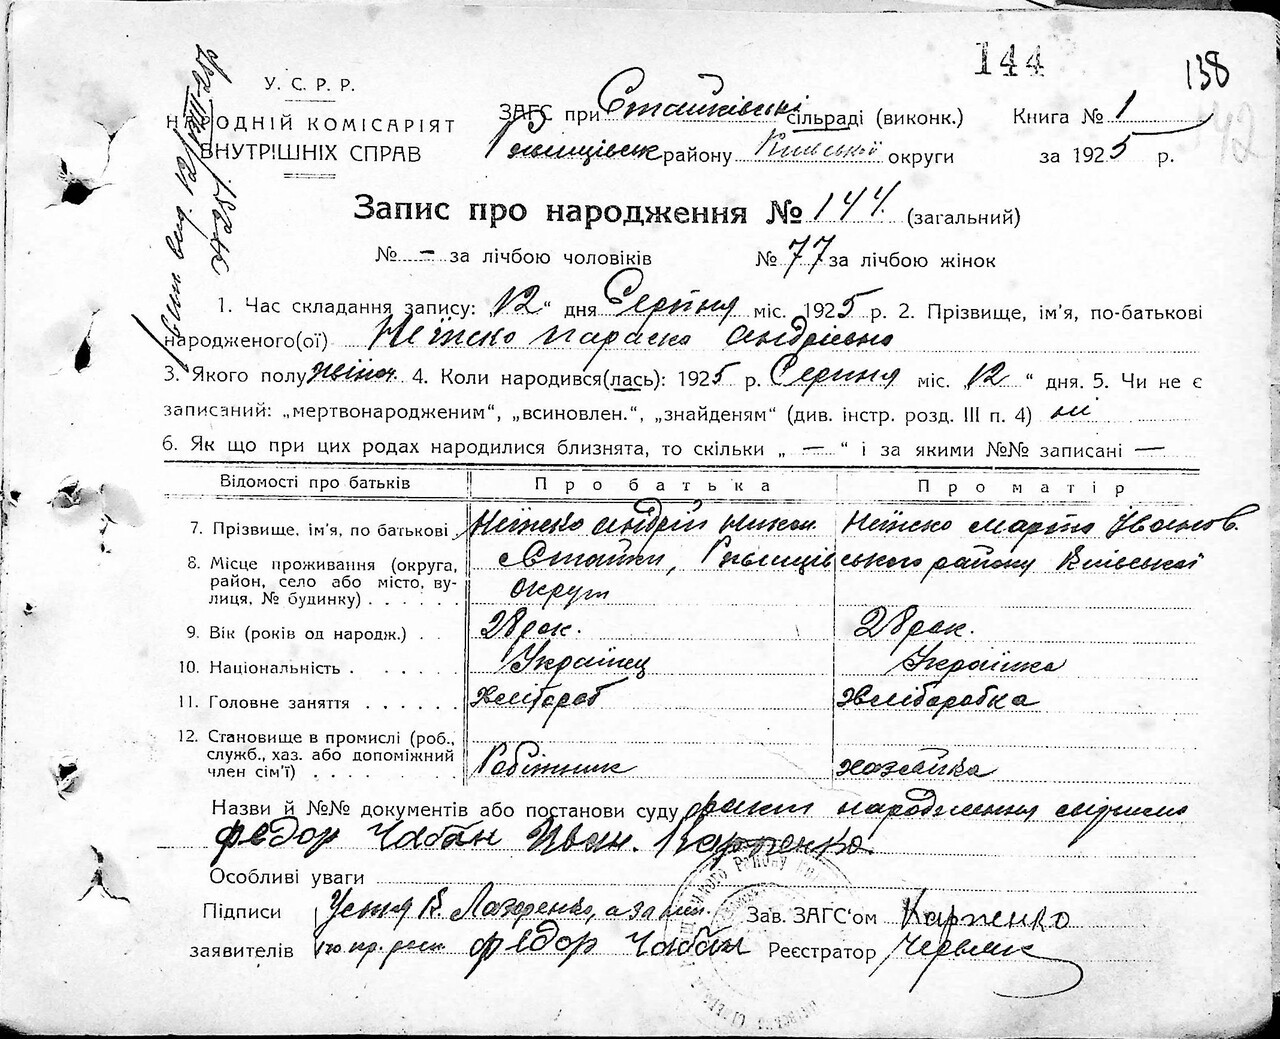 144
138
142
У. С. Р. Р.
НАРОДНІЙ КОМІСАРІЯТ
ВНУТРІШНІХ СПРАВ
вид. 12/VIII-25р
№ 251
ЗАГС при Стайківські сільраді (виконк.) Книга № 1
Ржищівськ району Київської округи за 1925 р.
Запис про народження № 144. (загальний)
№ - за лічбою чоловіків № 77 за лічбою жінок
1. Час складання запису: „12“ дня Серпня міс. 1925 р. 2. Прізвище, ім'я, по-батькові
народженого(ої) Параска Андріівна
3. Якого полу жіноч. 4. Коли народився(лась): 1925 р. Серпня міс. „12“ дня. 5. Чи не є
записаний: „мертвонародженим“, „всиновлен.“, „знайденям“ (див. інстр. розд. III п. 4) ні
6. Як що при цих родах народилися близнята, то скільки „ — “ і за якими №№ записані —
Відомості про батьків Про батька Про матір
7. Прізвище, ім'я, по батькові Андрій Никон. Марта Іванов.
8. Місце проживання (округа, район, село або місто, вулиця, № будинку) . . . . . . Стайки, Ржищівського району Київської
округи
9. Вік (років од народж.) . . 28 рок. 28 рок.
10. Національність . . . . . . Українец Українка
11. Головне заняття . . . . . . Хлібороб Хліборобка
12. Становище в промислі (роб., служб., хаз. або допоміжний член сім'ї) . . . . . . . Робітник хазяйка
Назви й №№ документів або постанови суду факт народження свідчили
федор Чабан Іван. Карпенко.
Особливі уваги
Підписи Устня В. Лазоренко, а за неп.
заявителів по пр. росп федор Чабан
Зав. ЗАГС'ом Карпенко
Реєстратор Червяк